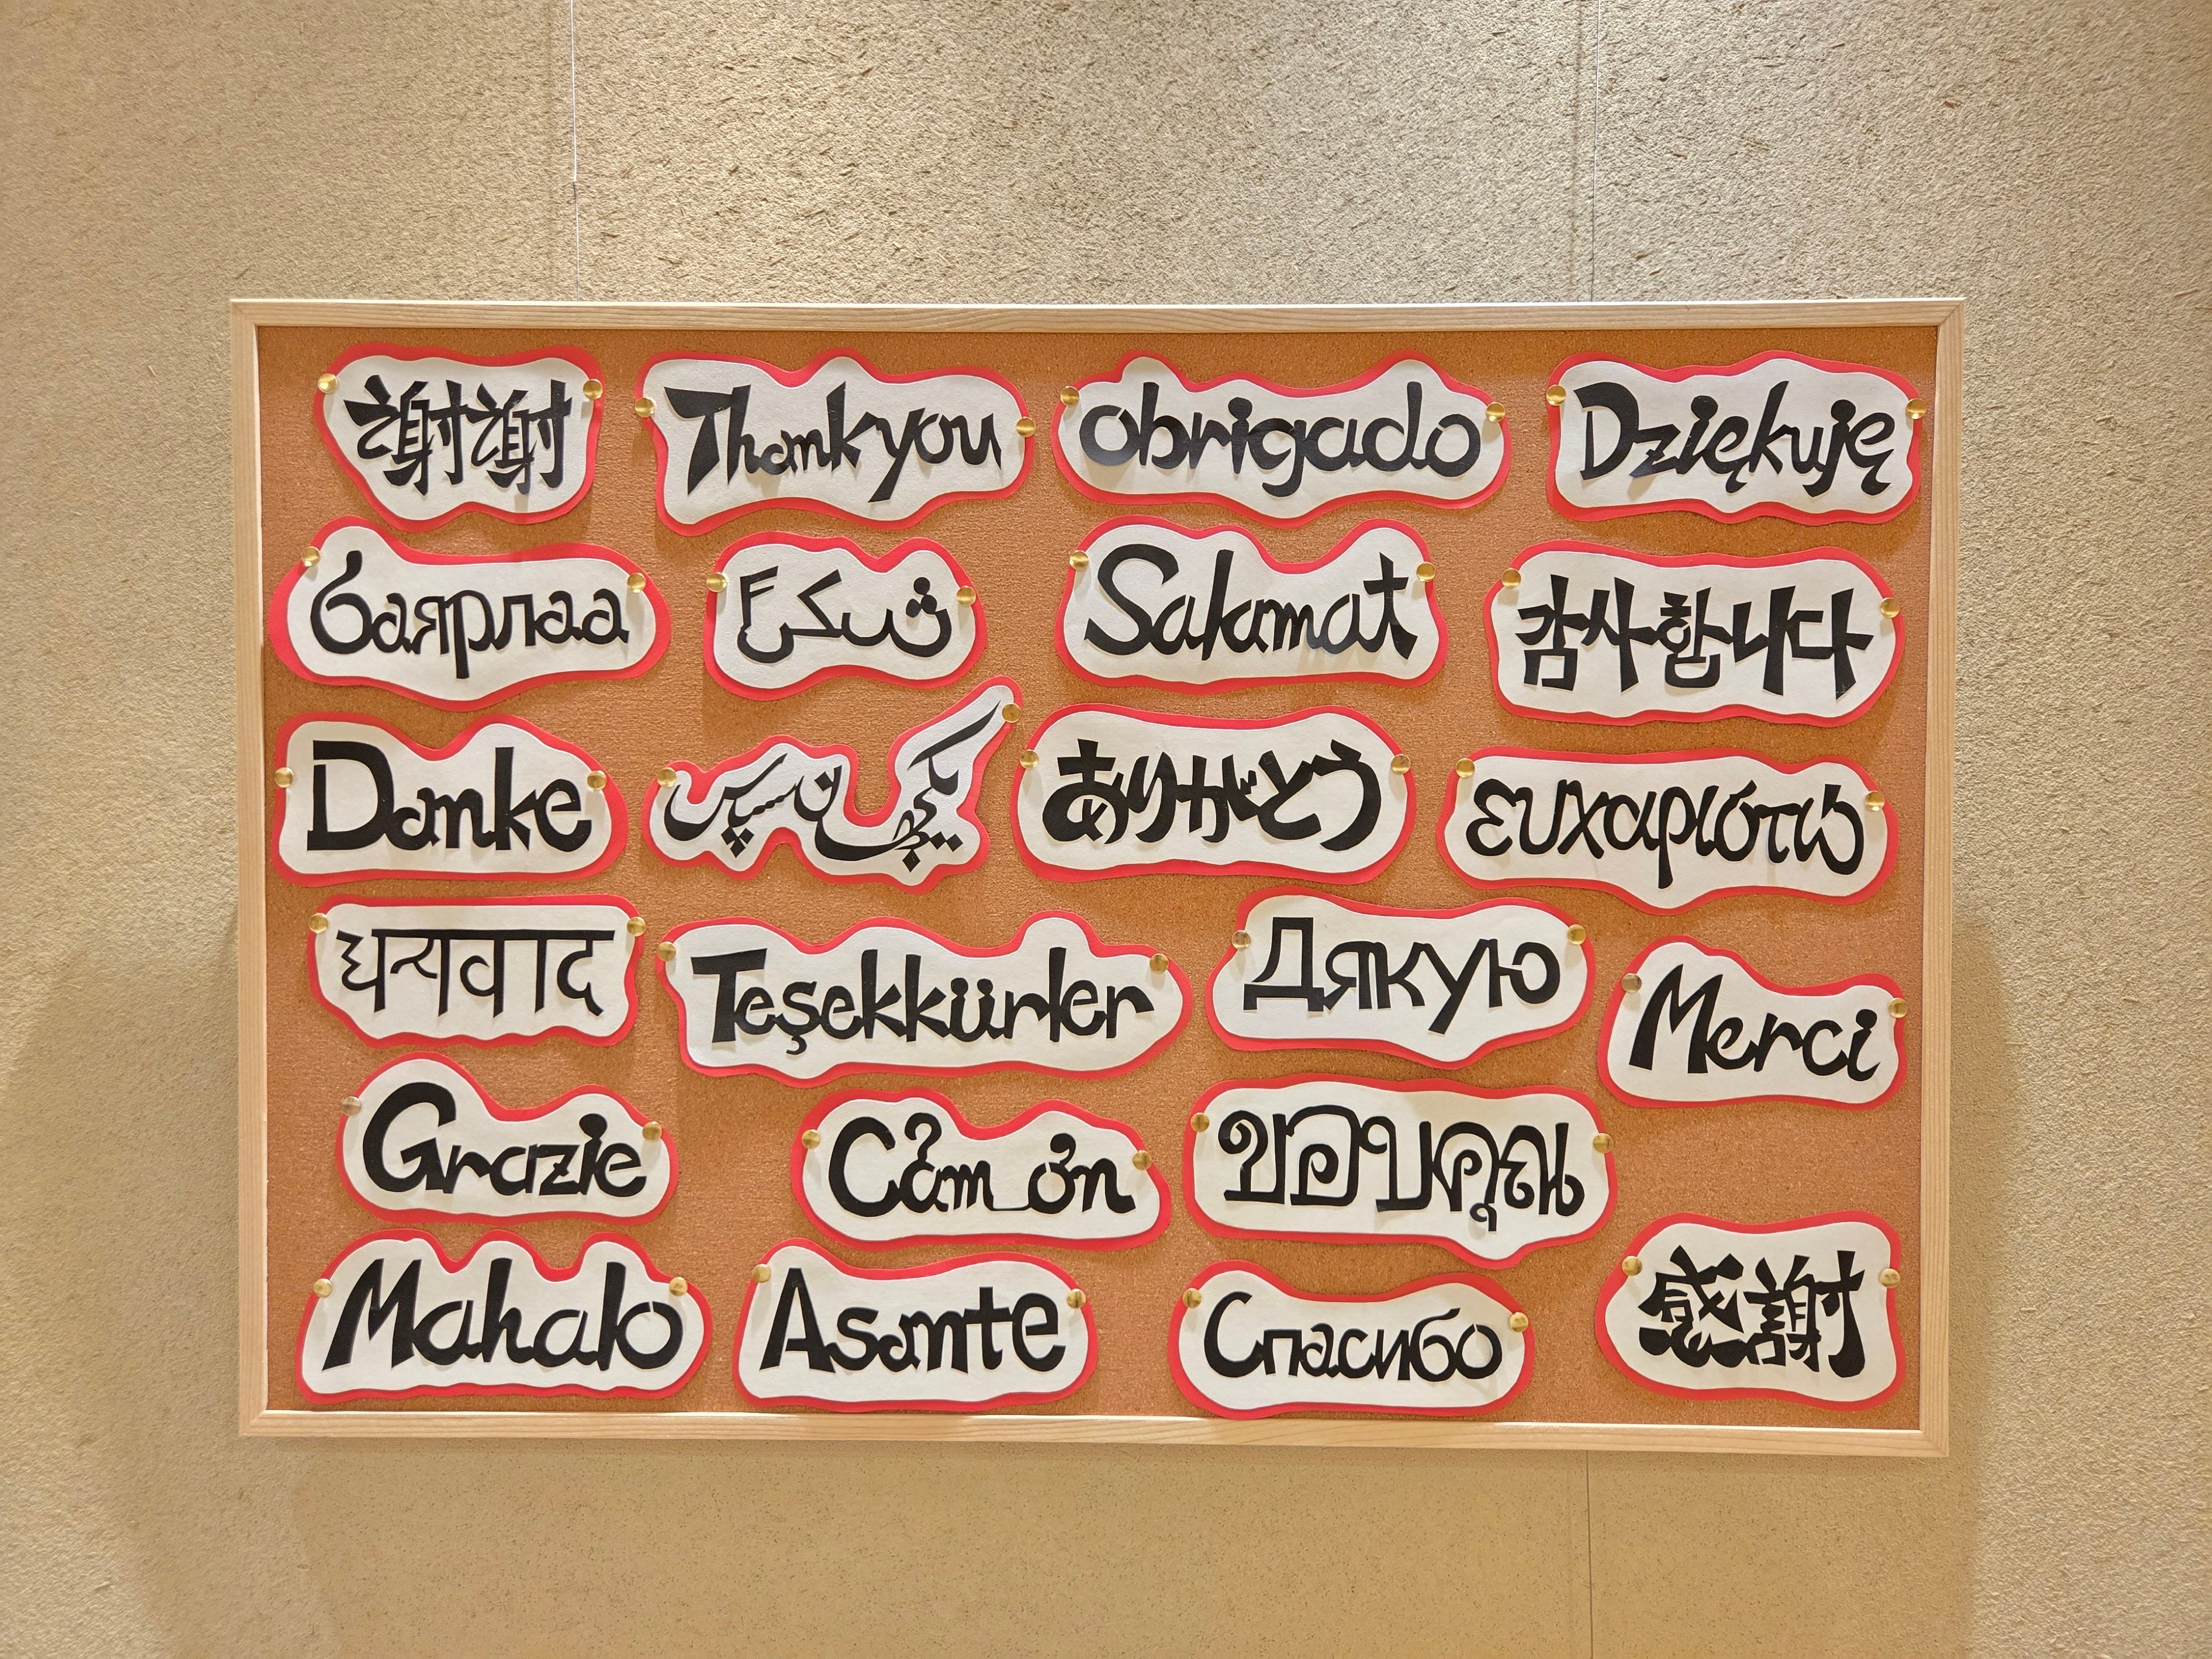 謝謝
Thank you
obrigado
Dziękuję
баярлаа
شكراً
Salamat
감사합니다
Danke
یک جهان سپاس
ありがとう
ευχαριστώ
धन्यवाद
Teşekkürler
Дякую
Merci
Grazie
Cảm ơn
ขอบคุณ
Mahalo
Asante
Спасибо
感謝